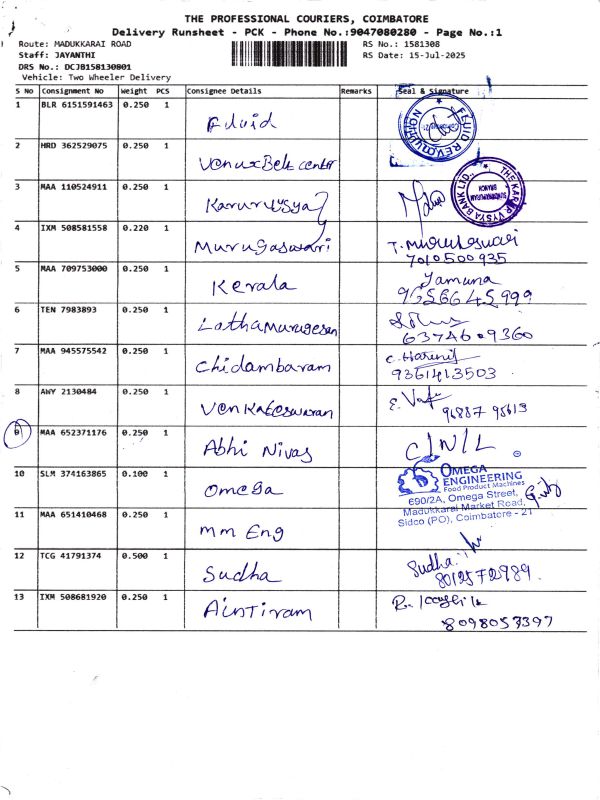 THE PROFESSIONAL COURIERS, COIMBATORE
Delivery Runsheet - PCK - Phone No.:9047080280 - Page No.:1
Route: MADUKKARAI ROAD RS No.: 1581308
Staff: JAYANTHI RS Date: 15-Jul-2025
DRS No.: DCJB158130801
Vehicle: Two Wheeler Delivery
S No Consignment No Weight PCS Consignee Details Remarks Seal & Signature
1 BLR 6151591463 0.250 1 Fluid
FLUID REVOLUTION
2 HRD 362529075 0.250 1 Venux Belt center
3 MAA 110524911 0.250 1 Karur vysya
THE KARUR VYSYA BANK LTD., BRANCH
4 IXM 508581558 0.220 1 Murugaswari T. Murugaswari
7010500935
5 MAA 709753000 0.250 1 Kerala Yamuna
9656645999
6 TEN 7983893 0.250 1 Lathamurugesan
6374609360
7 MAA 945575542 0.250 1 Chidambaram C. Harenij
9361413503
8 AWY 2130484 0.250 1 Venkateswaran
96887 95613
9 MAA 652371176 0.250 1 Abhi Nivas C/N/L
10 SLM 374163865 0.100 1 Omega
OMEGA
ENGINEERING
Food Product Machines
690/2A, Omega Street,
Madukkarai Market Road,
Sidco (PO), Coimbatore - 21
11 MAA 651410468 0.250 1 mm Eng
12 TCG 41791374 0.500 1 Sudha Sudha
8012572989.
13 IXM 508681920 0.250 1 Aintiram
8098057397